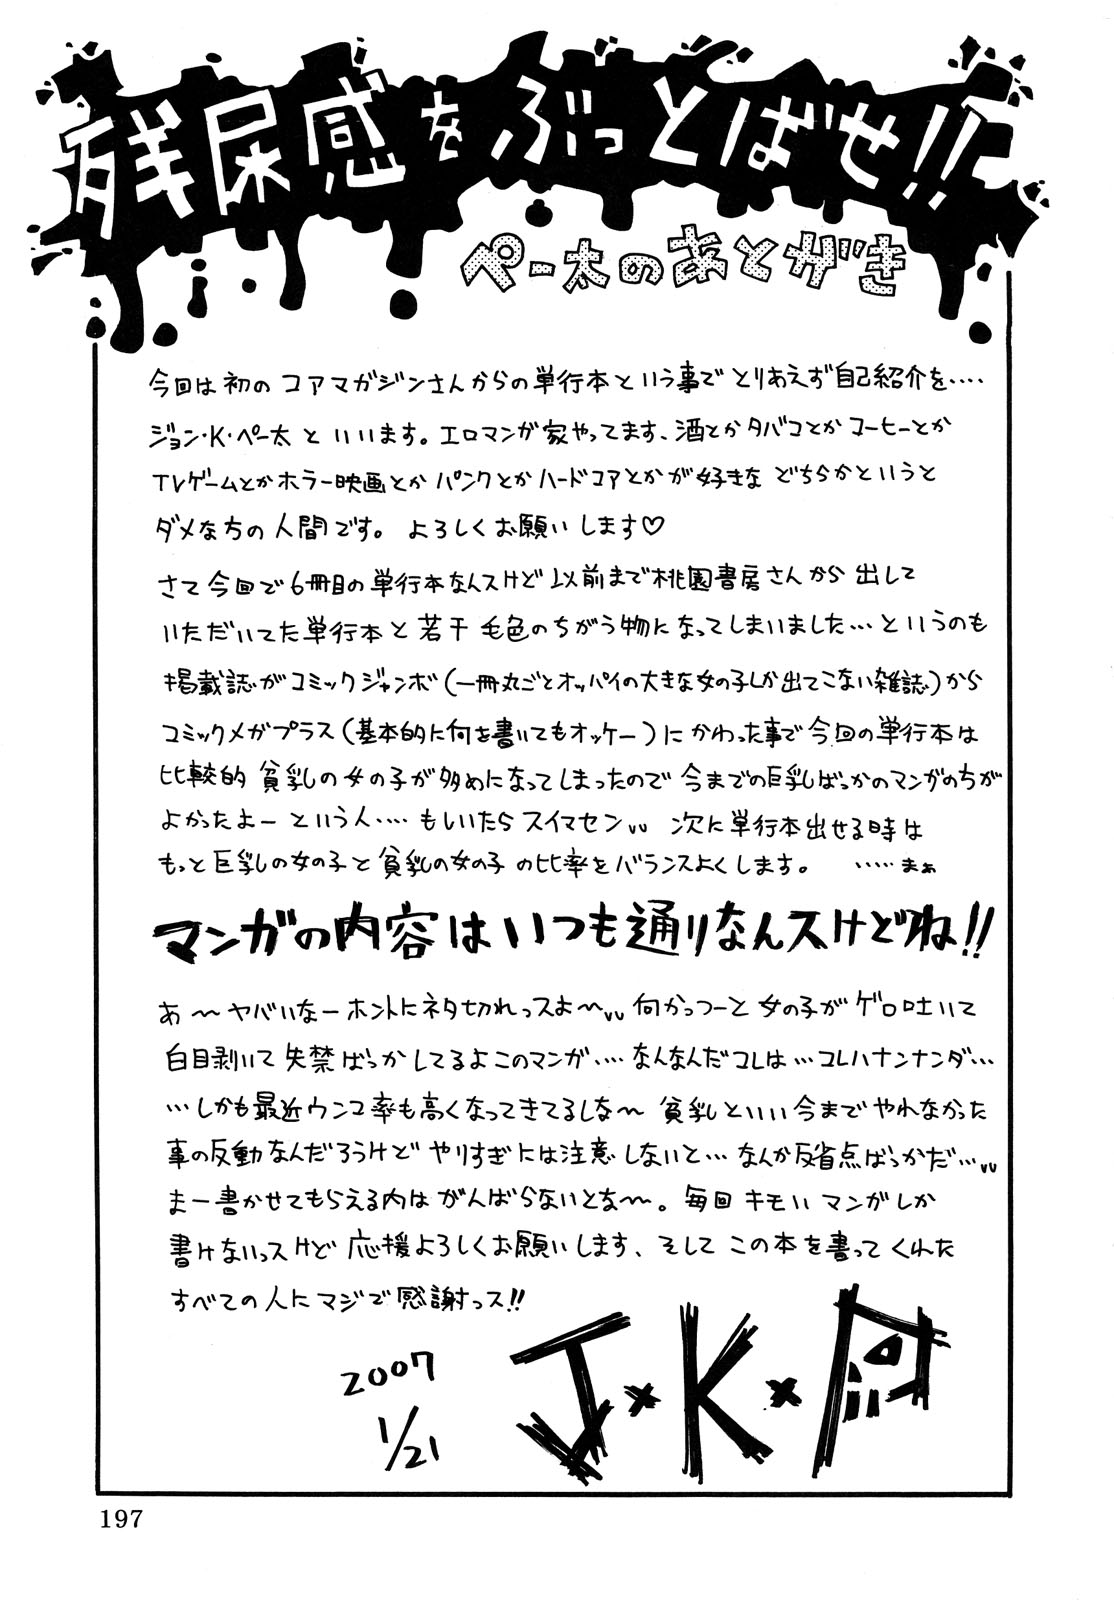 残尿感をぶっとばせ!!
ペー太のあとがき
今回は初の コアマガジンさんからの単行本という事で とりあえず自己紹介を‥‥
ジョン・K・ペー太 といいます。エロマンガ家やってます、酒とかタバコとかコーヒーとか
TVゲームとかホラー映画とか パンクとかハードコアとかが好きな どちらかというと
ダメな方の人間です。 よろしくお願いします♡
さて今回で6冊目の単行本なんスけど 以前まで桃園書房さんから出して
いただいてた単行本と若干毛色のちがう物になってしまいました…というのも
掲載誌がコミックジャンボ(一冊丸ごとオッパイの大きな女の子しか出てこない雑誌)から
コミックメガプラス(基本的に何を書いてもオッケー)にかわった事で今回の単行本は
比較的 貧乳の女の子が多めになってしまったので 今までの巨乳ばっかのマンガのちが
よかったよー という人‥‥ もしいたら スイマセン〃 次に単行本出せる時は
もっと巨乳の女の子と貧乳の女の子の比率をバランスよくします。 ‥‥‥まぁ
マンガの内容はいつも通りなんスけどね!!
あ〜ヤバいなーホントにネタ切れっスよ〜〃 何かっつーと女の子がゲロ吐いて
白目剥いて失禁ばっかしてるよこのマンガ‥‥ なんなんだコレは…コレハナンナンダ…
…しかも最近ウンコ率も高くなってきてるしな〜 貧乳といい今までやれなかった
事の反動なんだろうけど やりすぎには注意しないと… なんか反省点ばっかだ…〃
まー書かせてもらえる内はがんばらないとな〜。毎回キモいマンガしか
書けないっスけど 応援よろしくお願いします、そして この本を買って くれた
すべての人にマジで感謝っス!!
2007
1/21
J×K×P
197